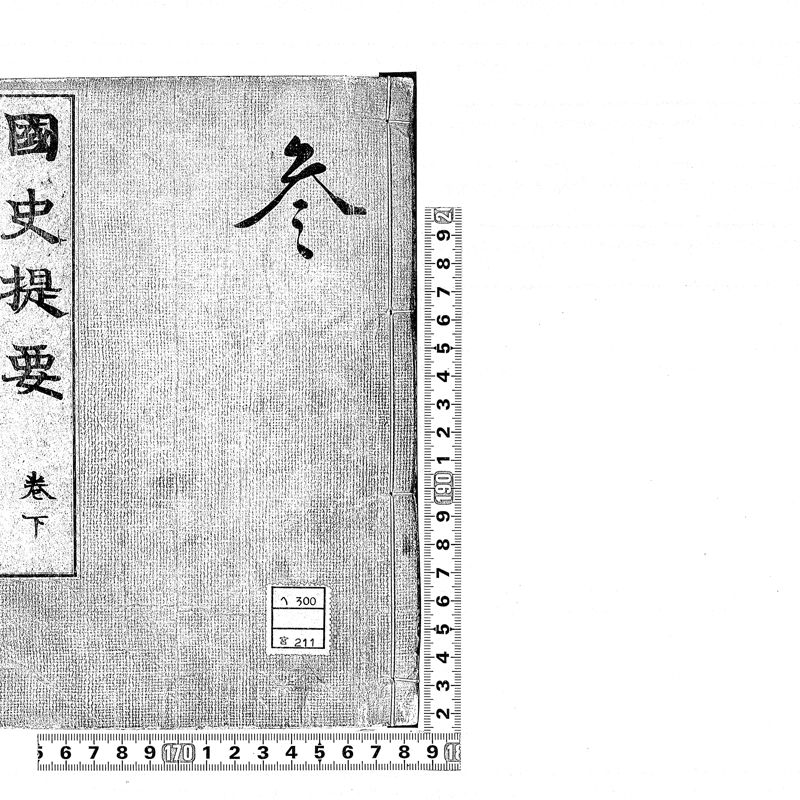 參
國史提要
卷下
ヘ 300
211
2 9 8 7 6 5 4 3 2 1 190 9 8 7 6 5 4 3 2
5 6 7 8 9 170 1 2 3 4 5 6 7 8 9 18